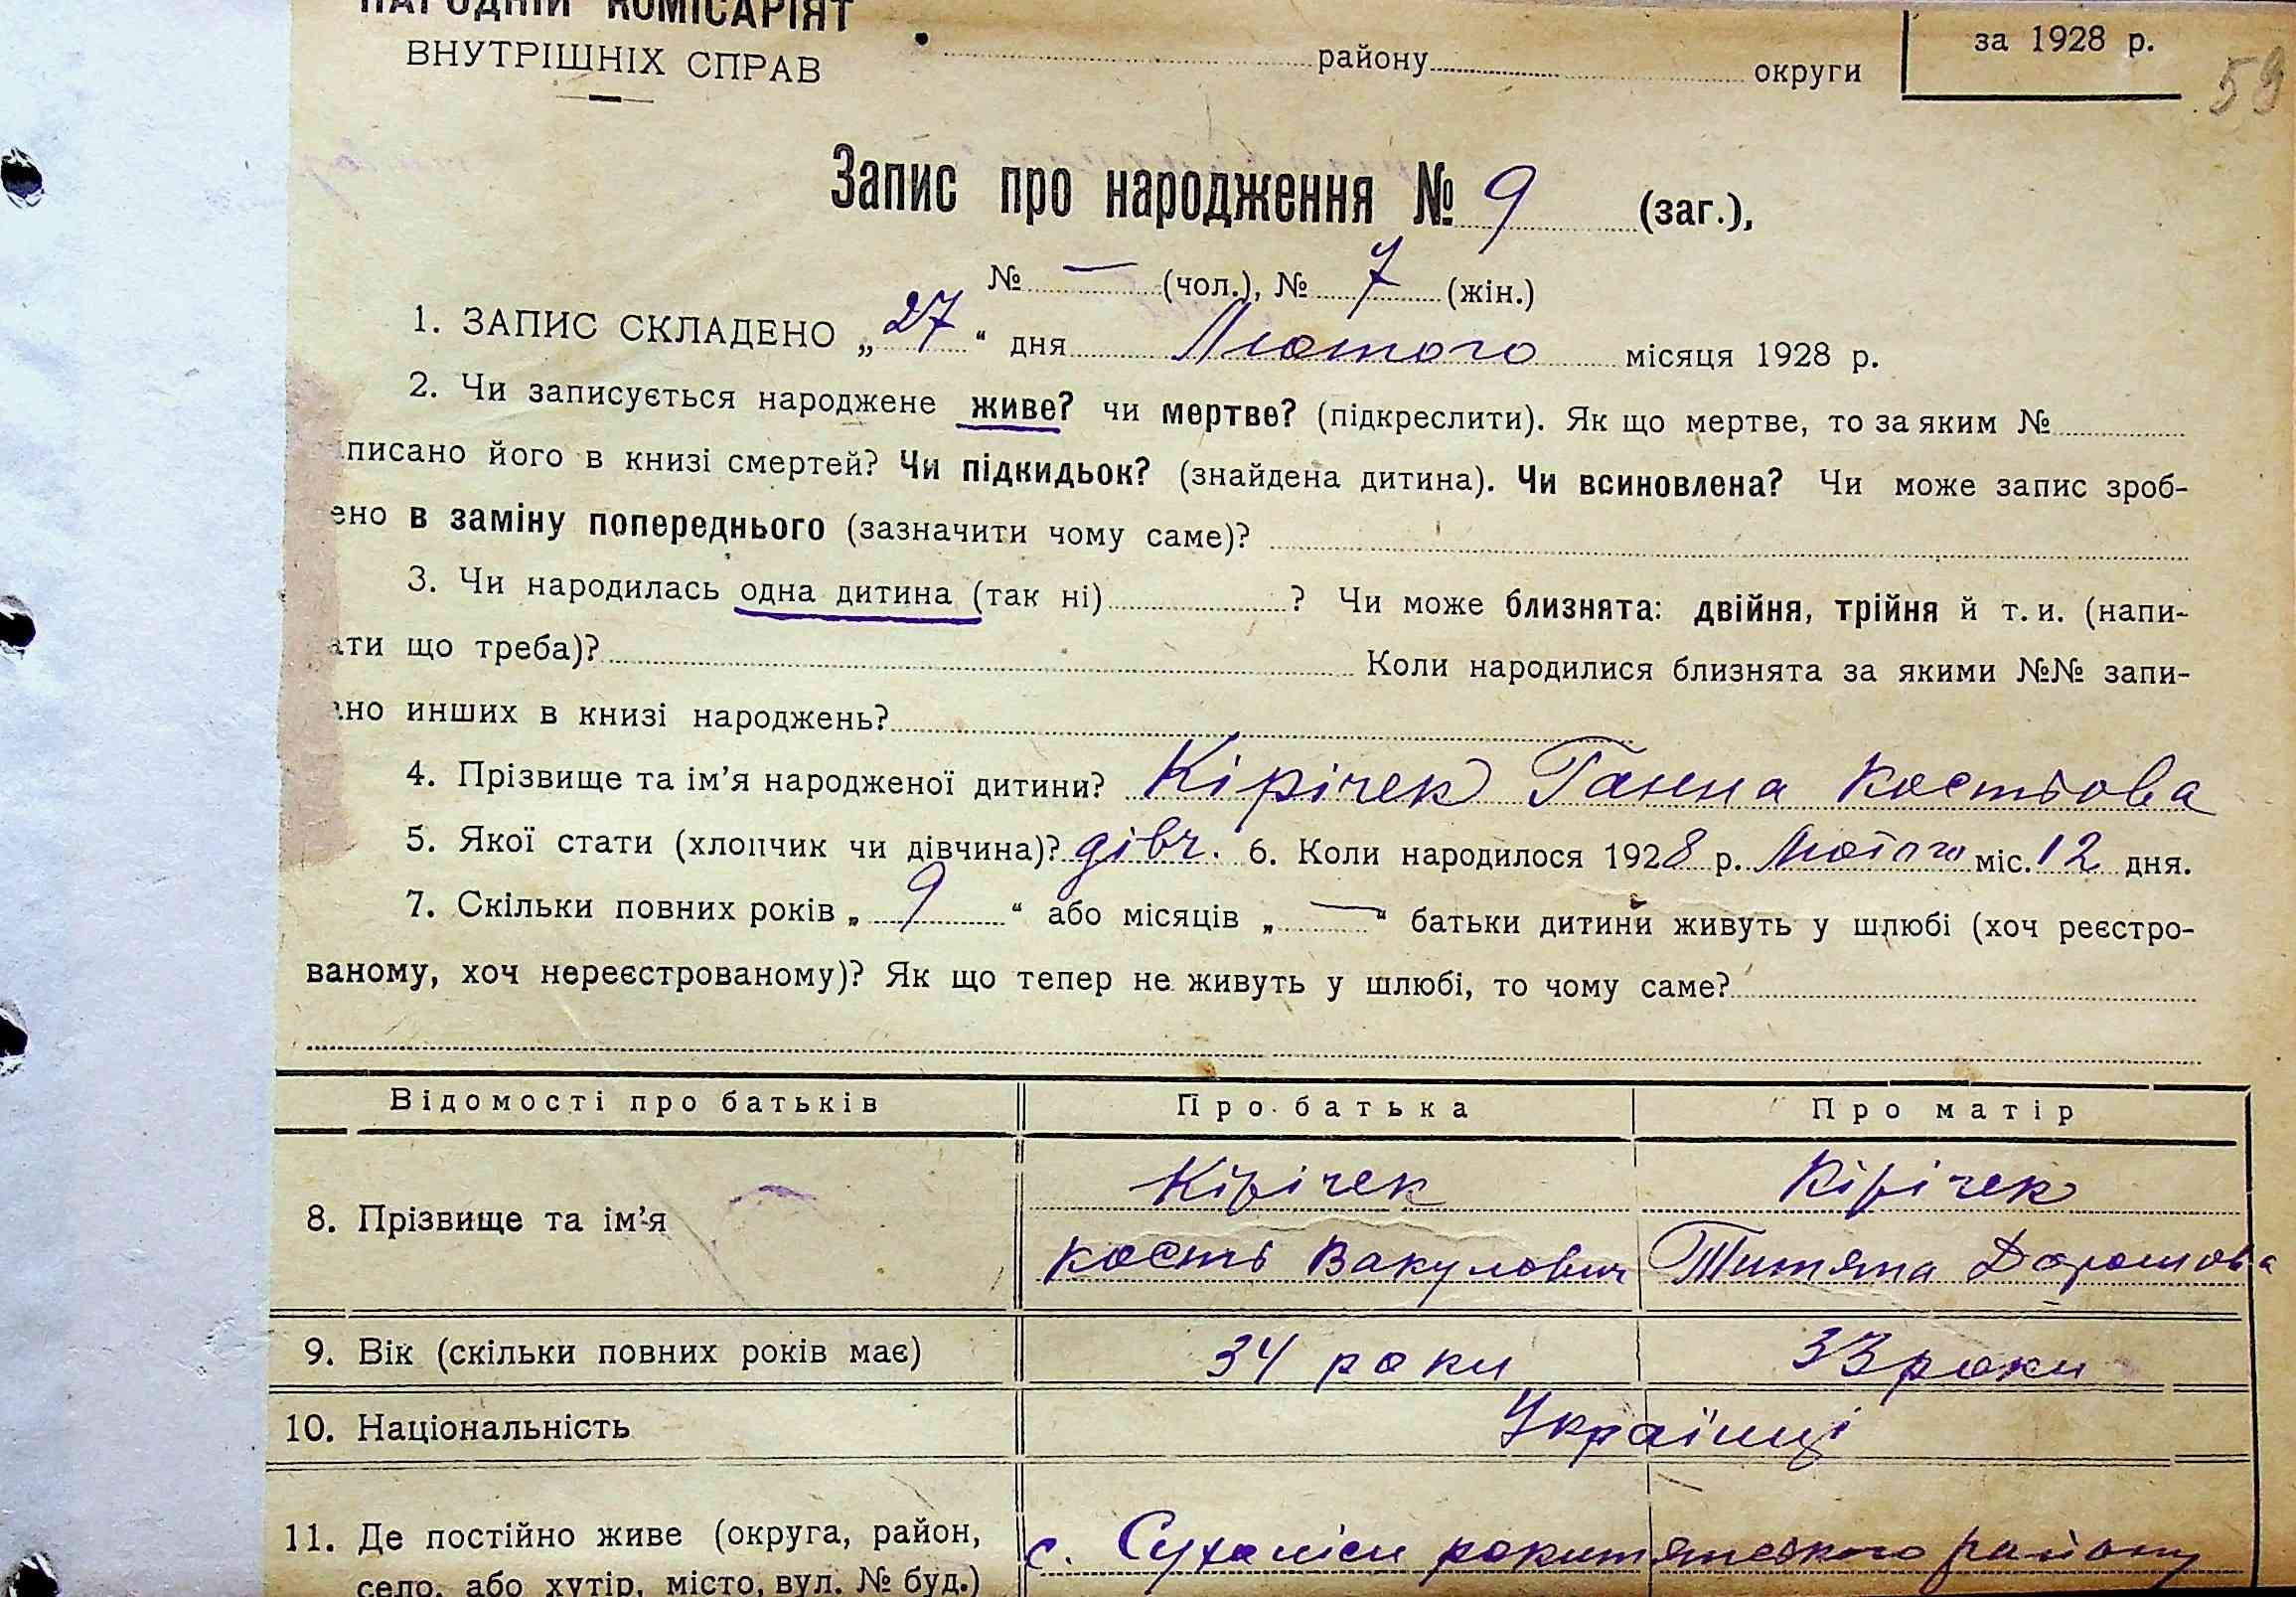 НАРОДНІЙ КОМІСАРІЯТ
ВНУТРІШНІХ СПРАВ
району округи
за 1928 р.
59
Запис про народження № 9 (заг.),
№ — (чол.), № 7 (жін.)
1. ЗАПИС СКЛАДЕНО „27“ дня Лютого місяця 1928 р.
2. Чи записується народжене живе? чи мертве? (підкреслити). Як що мертве, то за яким №
писано його в книзі смертей? Чи підкидьок? (знайдена дитина). Чи всиновлена? Чи може запис зроб-
ено в заміну попереднього (зазначити чому саме)?
3. Чи народилась одна дитина (так ні) ? Чи може близнята: двійня, трійня й т. и. (напи-
ати що треба)? Коли народилися близнята за якими №№ запи-
ано инших в книзі народжень?
4. Прізвище та ім’я народженої дитини? Кірічек Ганна Костьова
5. Якої стати (хлопчик чи дівчина)? дівч. 6. Коли народилося 1928 р. Лютого міс. 12 дня.
7. Скільки повних років „9“ або місяців „—“ батьки дитини живуть у шлюбі (хоч реєстро-
ваному, хоч нереєстрованому)? Як що тепер не живуть у шлюбі, то чому саме?
Відомості про батьків Про батька Про матір
8. Прізвище та ім’я Кірічек Кірічек
Кость Вакулович Титяна Дорошова
9. Вік (скільки повних років має) 34 роки 33 роки
10. Національність Українці
11. Де постійно живе (округа, район, с. Сухоліси рокитянського району
село, або хутір, місто, вул. № буд.)